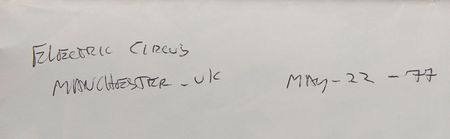 ELECTRIC CIRCUS
MANCHESTER - UK MAY - 22 - 77